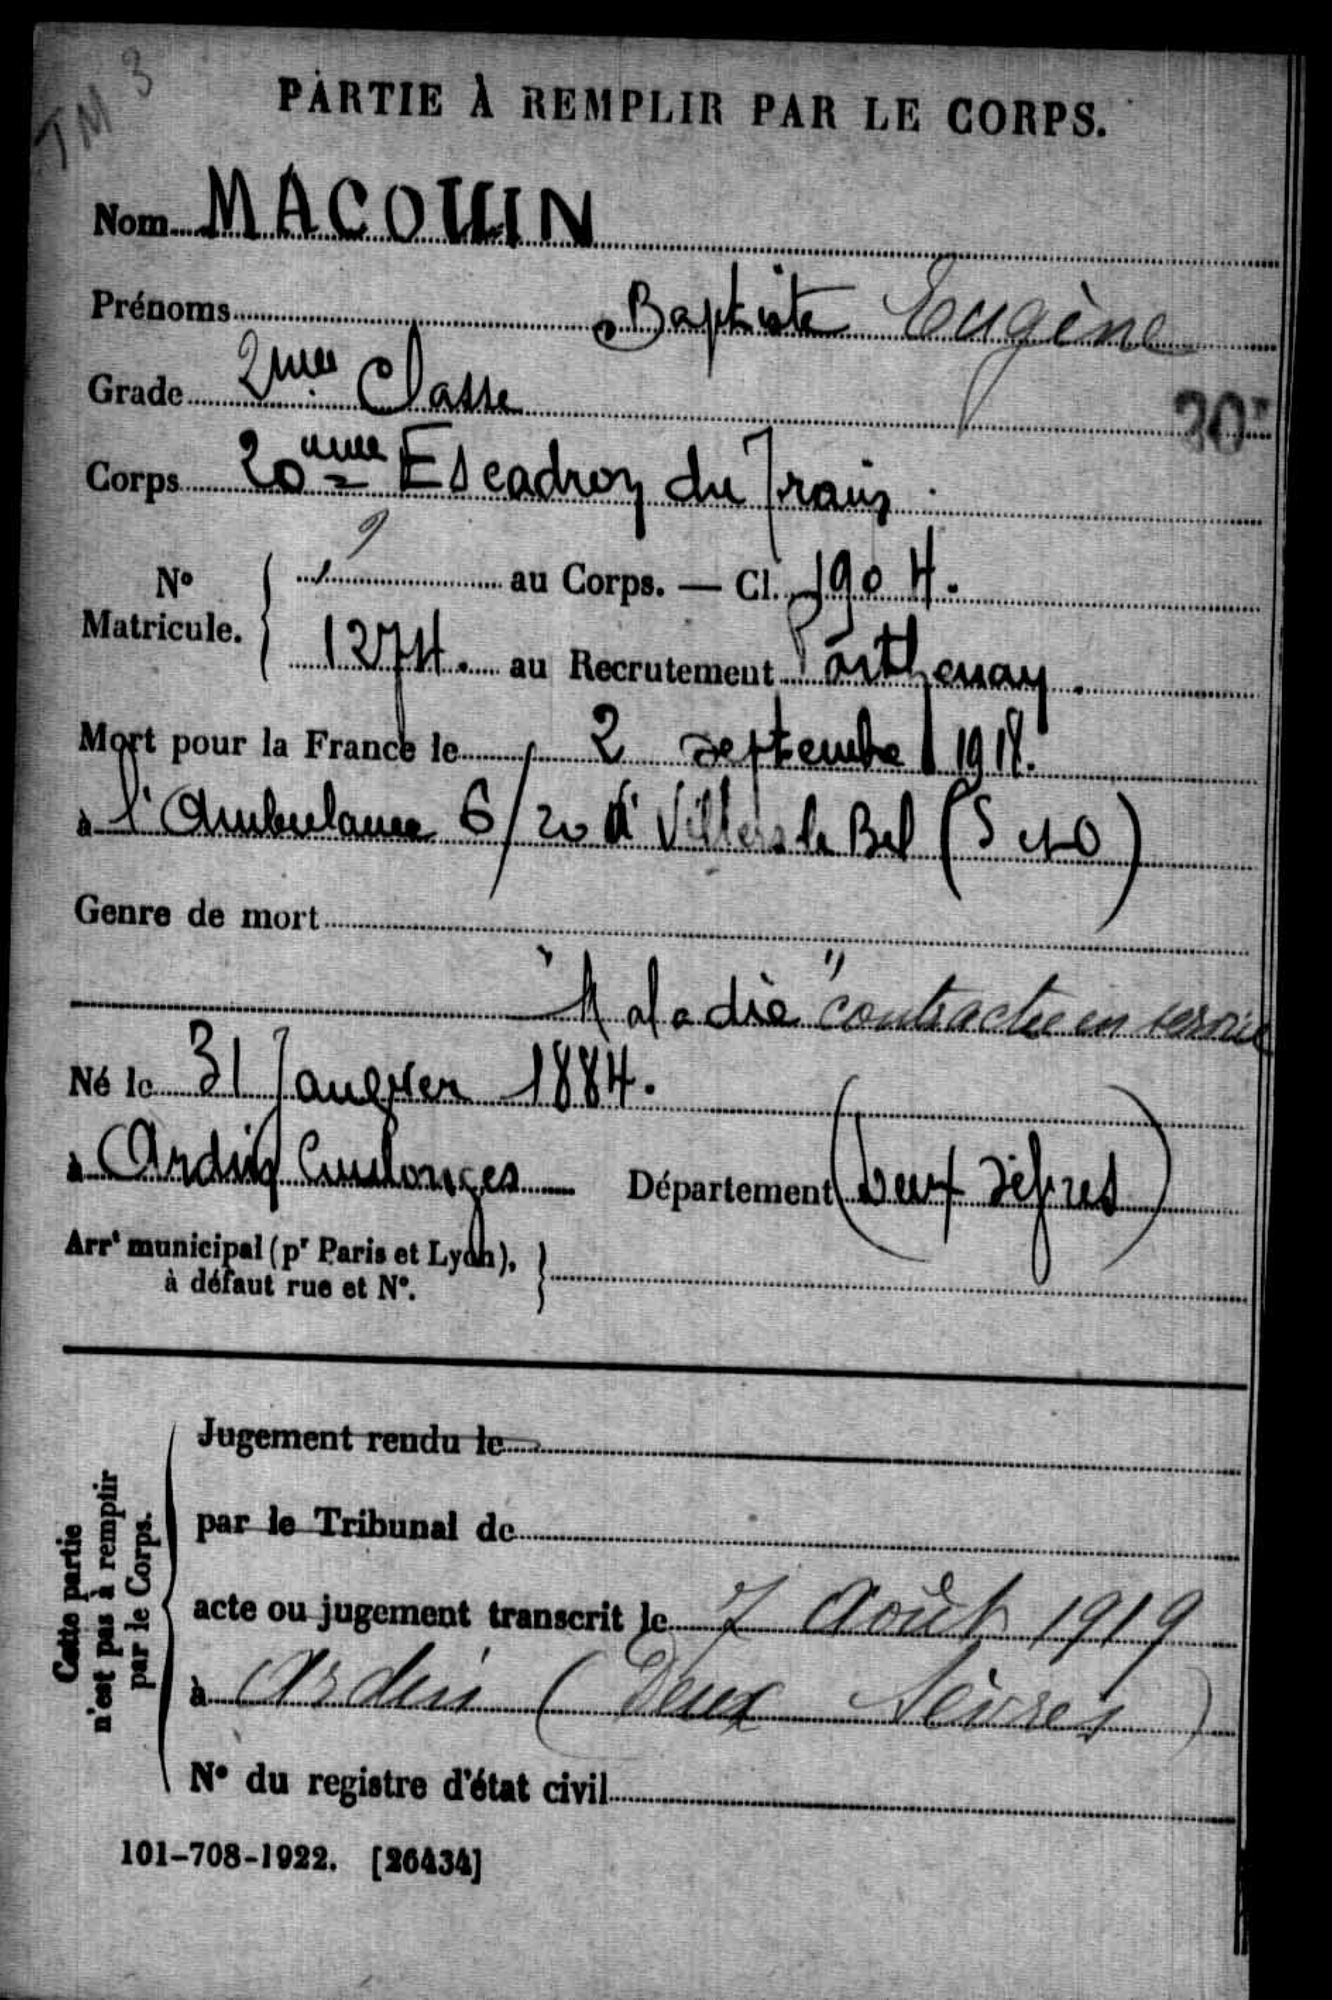 TM 3
PARTIE À REMPLIR PAR LE CORPS.
Nom MACOUIN
Prénoms Baptiste Eugène
Grade 2me Classe
30
Corps 20eme Escadron du Train.
N° Matricule. { au Corps. — Cl. 1904.
1274. au Recrutement Parthenay.
Mort pour la France le 2 septembre 1918.
à l'Ambulance 6/20 à Villers le Bel (S et O)
Genre de mort
"Maladie" contractée en service
Né le 31 Janvier 1884.
à Ardin Coulonges Département (Deux Sèvres)
Arrt municipal (pr Paris et Lyon), }
à défaut rue et N°.
Cette partie
n'est pas à remplir
par le Corps.
Jugement rendu le
par le Tribunal de
acte ou jugement transcrit le 7 Août 1919
à Ardin (Deux Sèvres)
N° du registre d'état civil
101-708-1922. [26434]